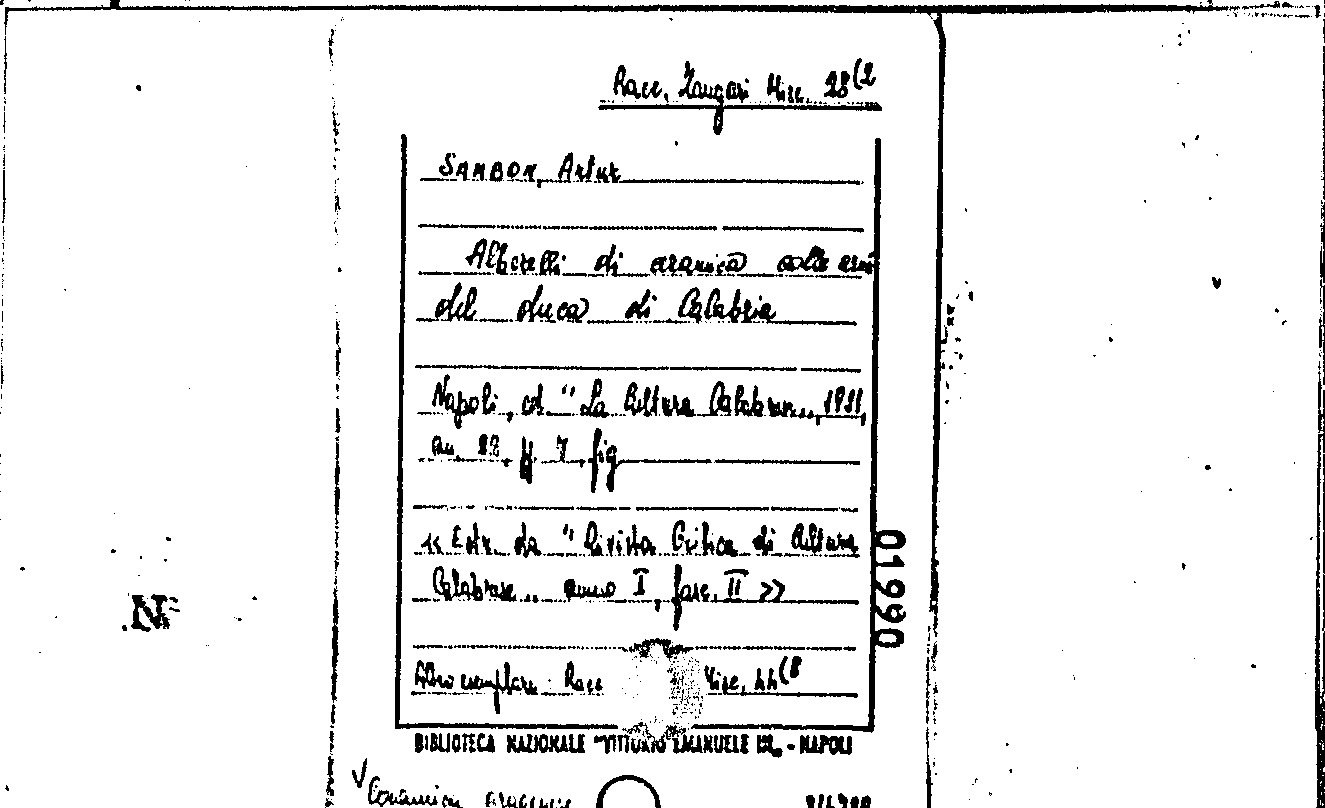 Racc. Zangari Misc. 28(2
SAMBON, Artur
Alberelli di ceramica colle armi
del duca di Calabria
Napoli, ed. "La Cultura Calabrese", 1921,
cm. 22, ff. 7, fig
<< Estr. da "Rivista Critica di Cultura
Calabrese" anno I, fasc. II >>
01990
Altro esemplare: Racc Misc, 44(8
BIBLIOTECA NAZIONALE "VITTORIO EMANUELE III" - NAPOLI
Nº
√ Ceramica